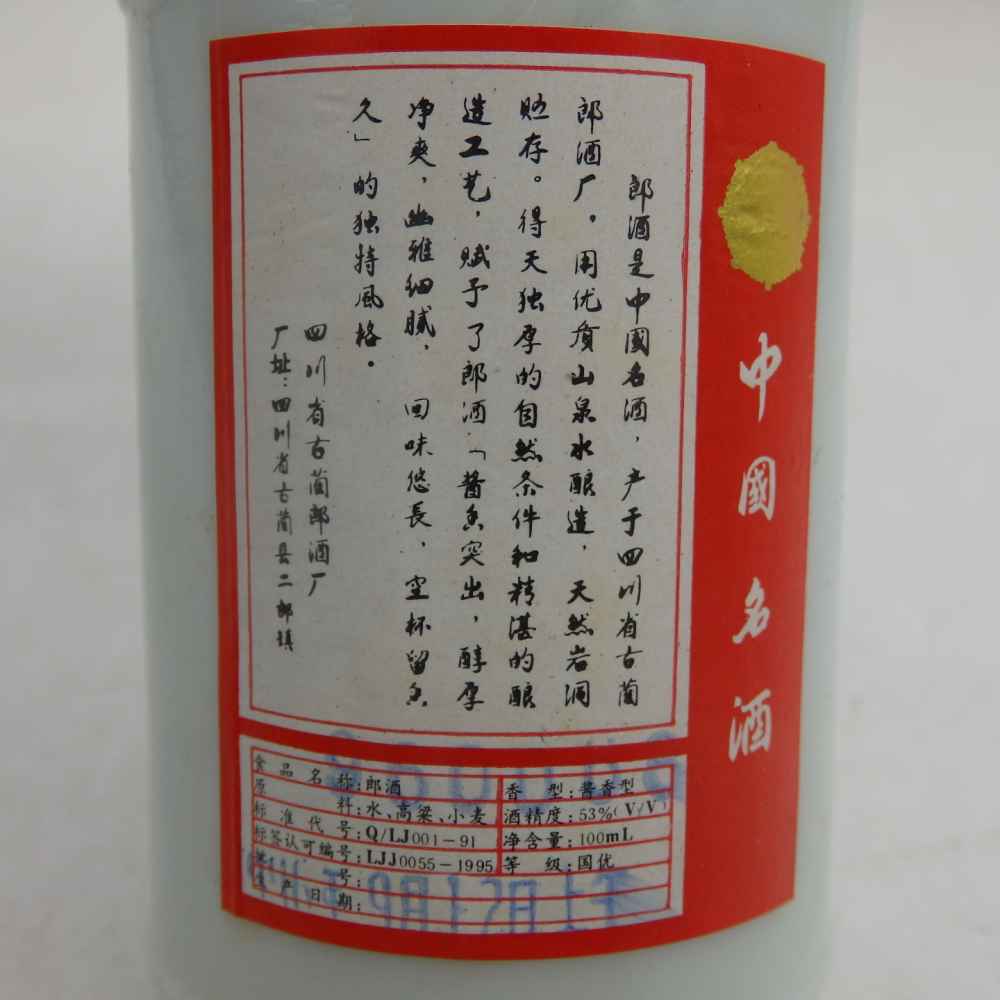 中國名酒
郎酒是中國名酒，产于四川省古蔺
郎酒厂。用优质山泉水酿造，天然岩洞
贮存。得天独厚的自然条件和精湛的酿
造工艺，赋予了郎酒「酱香突出，醇厚
净爽，幽雅细腻，回味悠長，空杯留香
久」的独特风格。
四川省古蔺郎酒厂
厂址：四川省古蔺县二郎镇
食品名称：郎酒
香型：酱香型
原料：水、高梁、小麦
酒精度：53%(V/V)
标准代号：Q/LJ001-91
净含量：100mL
标签认可编号：LJJ0055-1995
等级：国优
批号：
生产日期：